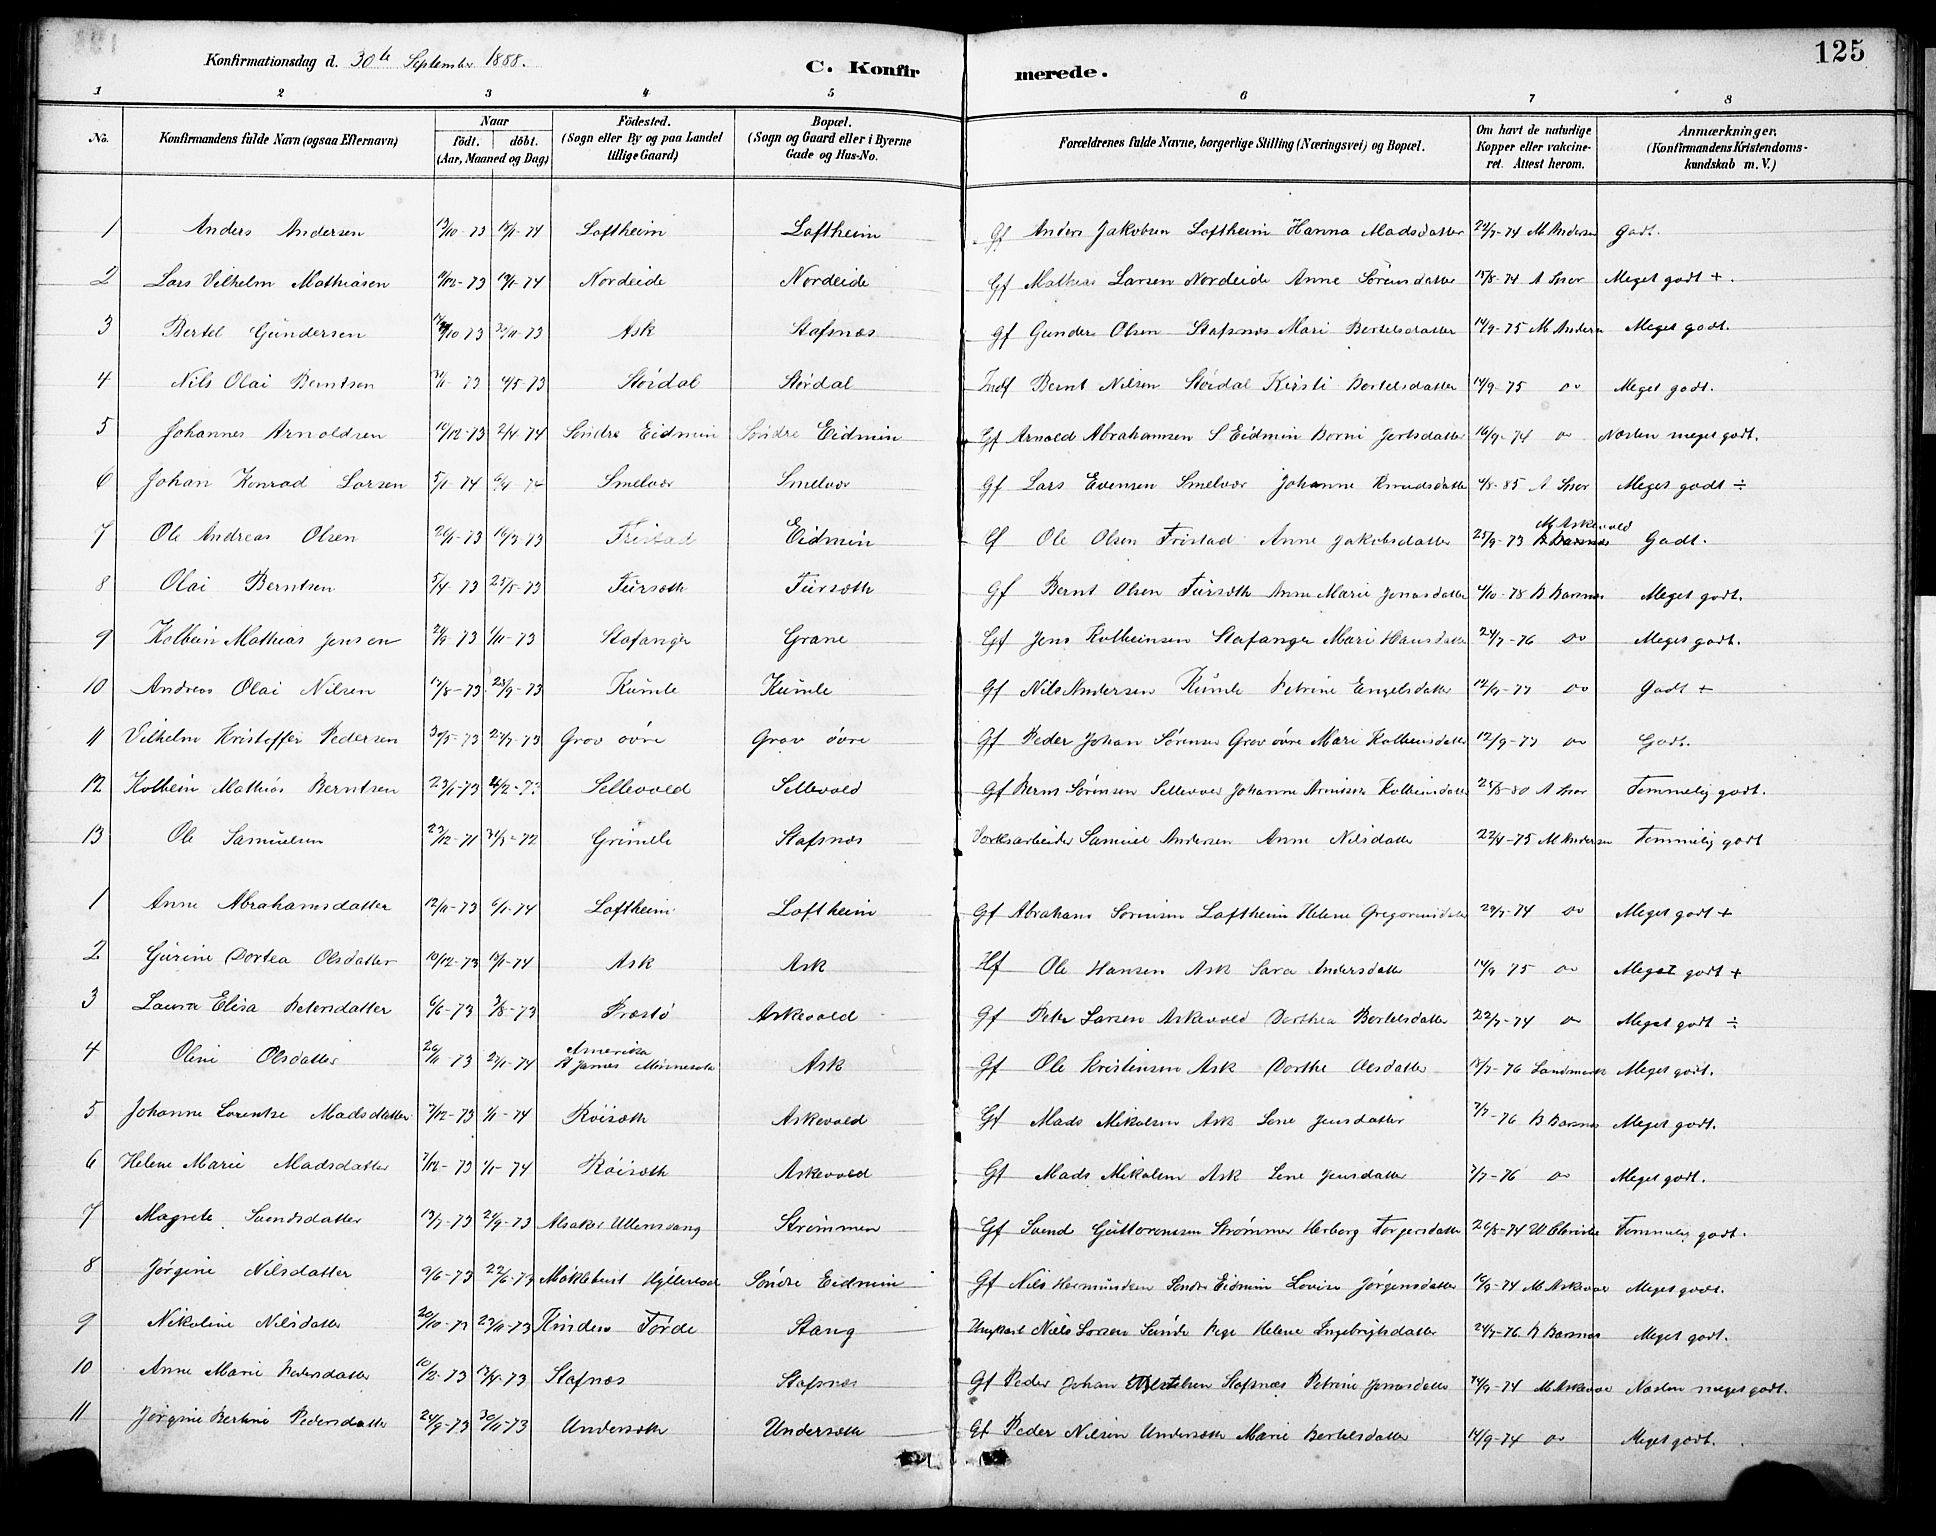 125
Konfirmationsdag d. 30te September 1888.
C. Konfirmerede.
1 2 3 4 5 6 7 8
No. Konfirmandens fulde Navn (ogsaa Efternavn) Naar födt. döbt. (Aar, Maaned og Dag) Födested. (Sogn eller By og paa Landet tillige Gaard) Bopæl. (Sogn og Gaard eller i Byerne Gade og Hus-No. Forældrenes fulde Navne, borgerlige Stilling (Næringsvei) og Bopæl. Om havt de naturlige Kopper eller vakcineret. Attest herom. Anmærkninger. (Konfirmandens Kristendomskundskab m. V.)
1 Anders Andersen Loftheim Loftheim Gf Anders Jakobsen Loftheim Hanna Madsdatter M Andersen Godt.
2 Lars Vilhelm Mathiasen Nordeide Nordeide Gf Mathias Larsen Nordeide Anne Sörensdatter 15/8-74 Meget godt +.
3 Bertel Gundersen Ask Stafsnæs Gf Gunder Olsen Stafsnæs Mari Bertelsdatter 14/9-75 M Andersen Meget godt.
4 Nils Olai Berntsen Stördal Stördal Indf Bernt Nilsen Stördal Kirsti Bertelsdatter 14/9-75 do Meget godt.
5 Johannes Arnoldsen 10/12-73 2/4-74 Söndre Eidmin Söndre Eidmin Gf Arnold Abrahamsen S Eidmin Borni 16/9-74 do Næsten meget godt.
6 Johan Konrad Larsen 5/1-74 Smelvær Smelvær Gf Lars Evensen Smelvær Johanne Knudsdatter Meget godt ÷
7 Ole Andreas Olsen Fristad Eidmin Gf Ole Olsen Fristad Anne Jakobsdatter 25/9-73 M Askevold Godt.
8 Olai Berntsen 5/4-73 25/5-73 Fürsæth Fürsæth Gf Bernt Olsen Fürsæth Anne Marie Jonasdatter B Barsnes Meget godt.
9 Kolbein Mathias Jensen Stafanger Grane Gf Jens Kolbeinsen Stafanger Mari Hansdatter 24/7-76 do Meget godt.
10 Andreas Olai Nilsen Kümle Kümle Gf Nils Andersen Kümle Petrine Engelsdatter do Godt +
11 Vilhelm Kristoffer Pedersen 30/5-73 Grov övre Grov övre Gf Peder Johan Sörensen Grov övre Mari Kolbeinsdatter do Godt.
12 Kolbein Mathias Berntsen Sellevold Sellevold Gf Bernt Sörensen Sellevold Johanne Kolbeinsdatter Temmelig godt.
13 Ole Samuelsen Grimelle Stafsnæs Samuel Andersen Anne Nilsdatter 22/4-75 M Andersen Temmelig godt
1 Anne Abrahamsdatter 12/11-73 6/1-74 Loftheim Loftheim Gf Abraham Sörensen Loftheim Helene do Meget godt +
2 Gurine Dortea Olsdatter Ask Ask Hf Ole Hansen Ask Sara Andersdatter 14/9 75 do Meget godt +
3 Laura Elisa Petersdatter 6/6-73 3/8-73 Præstö Askevold Gf Peter Larsen Askevold Dorthea Bertelsdatter 22/7-74 do Meget godt ÷
4 Oline Olsdatter Amerika St James Minnesota Ask Gf Ole Kristensen Ask Dorthe Olsdatter Landmark Meget godt.
5 Johanne Lorentse Madsdatter 7/12-73 1/1-74 Röisæth Askevold Gf Mads Mikalsen Ask Lene Jensdatter 7/7-76 B Barsnes Meget godt.
6 Helene Marie Madsdatter 7/12-73 1/1-74 Röisæth Askevold Gf Mads Mikalsen Ask Lene Jensdatter 7/7-76 do Meget godt.
7 Magrete Svendsdatter Alsaker Ullensvang Strömmen Gf Svend Guttormsen Strömmen Herborg Torgersdatter Temmelig godt.
8 Jörgine Nilsdatter Möklebust Hyllestad Söndre Eidmin Gf Nils Hermundsen Söndre Eidmin Lovise Jörgensdatter M Askevold Meget godt.
9 Nikoline Nilsdatter Förde Stang Ungkarl Niels Larsen Sunde Pige Helene Ingebrigtsdatter 24/7-76 B Barsnes Meget godt.
10 Anne Marie Pedersdatter Stafsnæs Stafsnæs Gf Peder Johan Stafsnæs Petrine Jonasdatter M Askevold Næsten meget godt.
11 Jörgine Bertine Pedersdatter 24/9-73 30/11-73 Undersæth Undersæth Gf Peder Nilsen Undersæth Marie Bertelsdatter 14/9-74 do Meget godt.